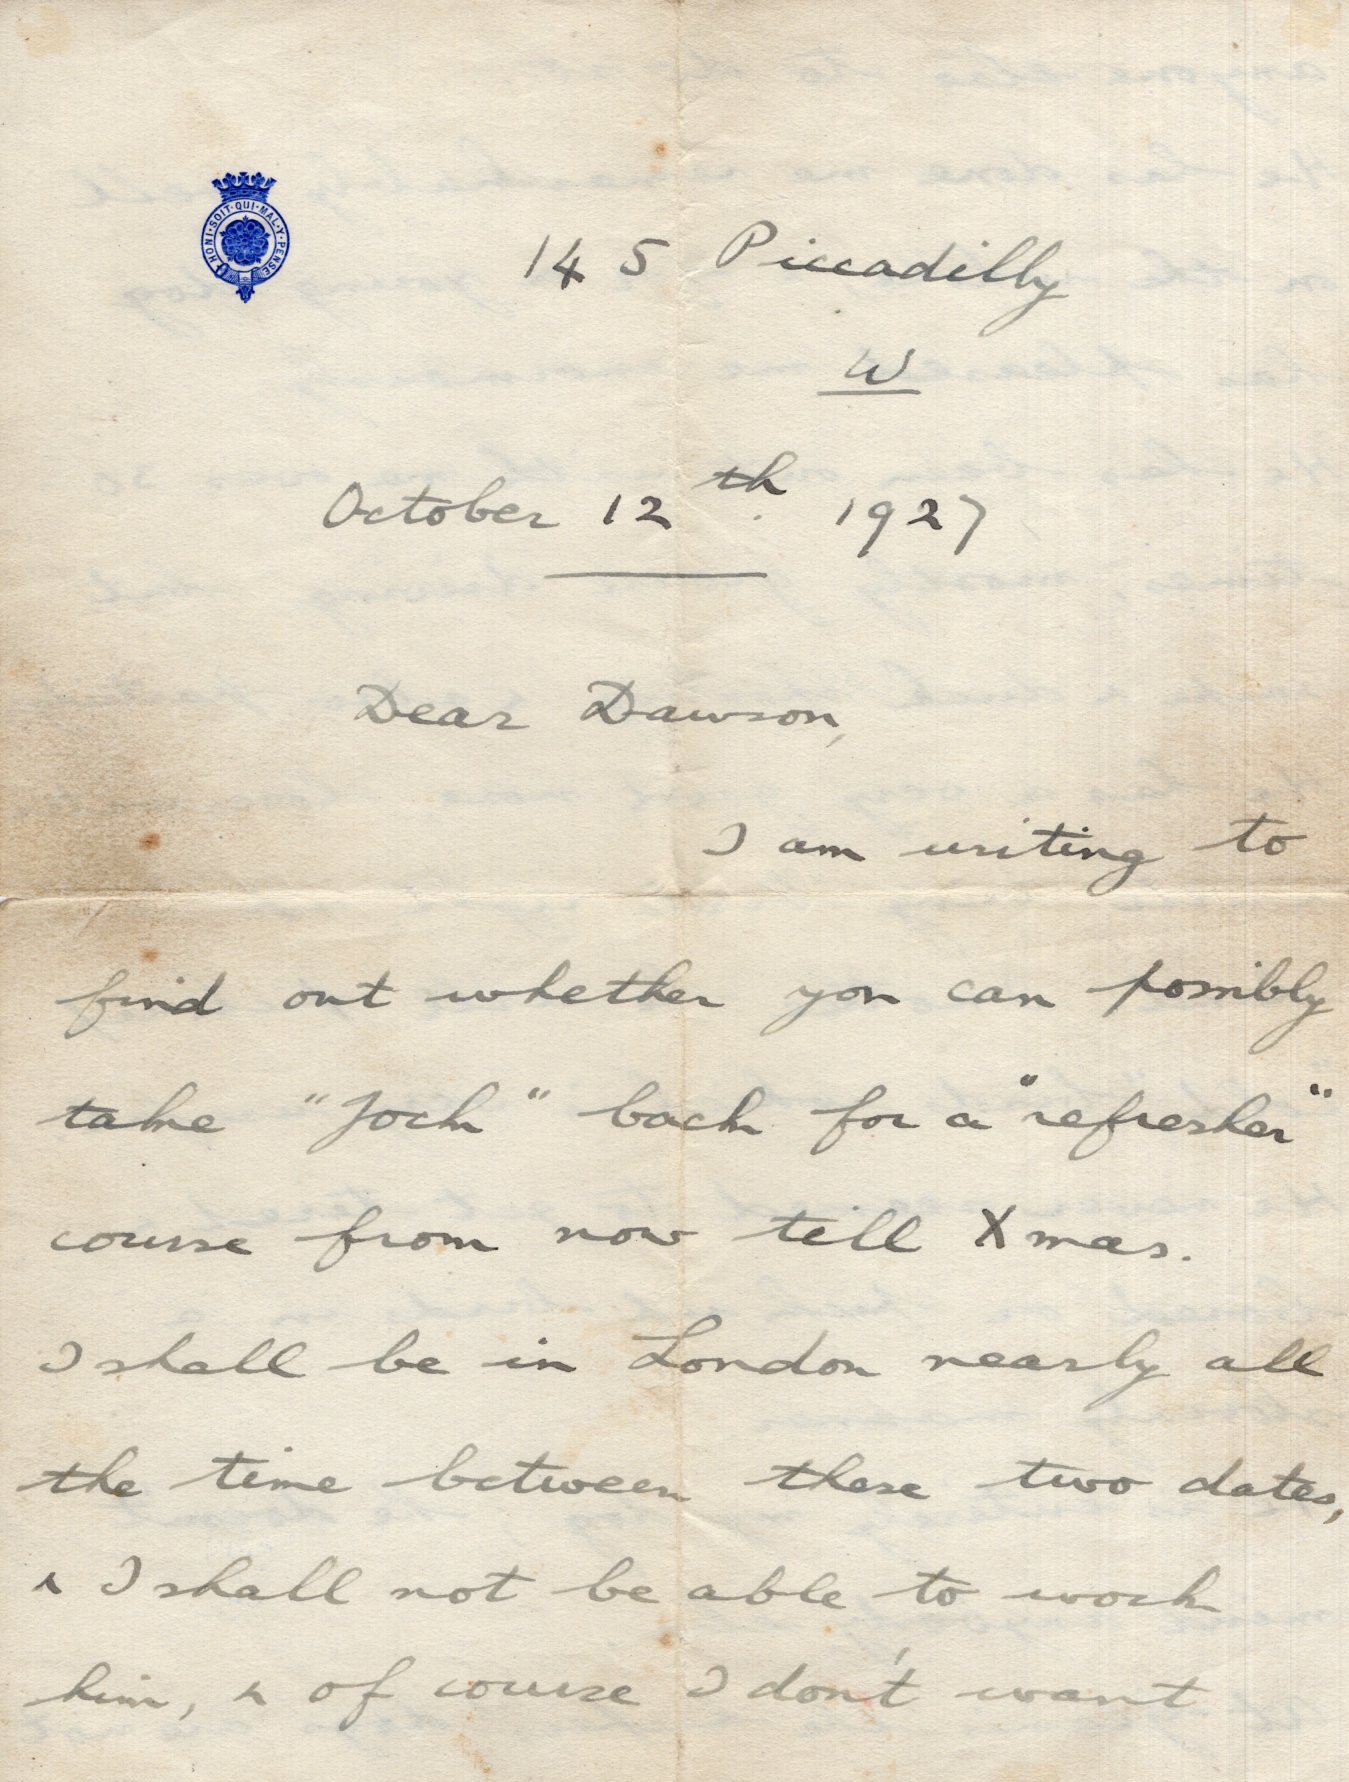 HONI·SOIT·QUI·MAL·Y·PENSE
145 Piccadilly
W
October 12th. 1927
Dear Dawson,
I am writing to
find out whether you can possibly
take "Jock" back for a "refresher"
course from now till Xmas.
I shall be in London nearly all
the time between these two dates,
& I shall not be able to work
him, & of course I don't want